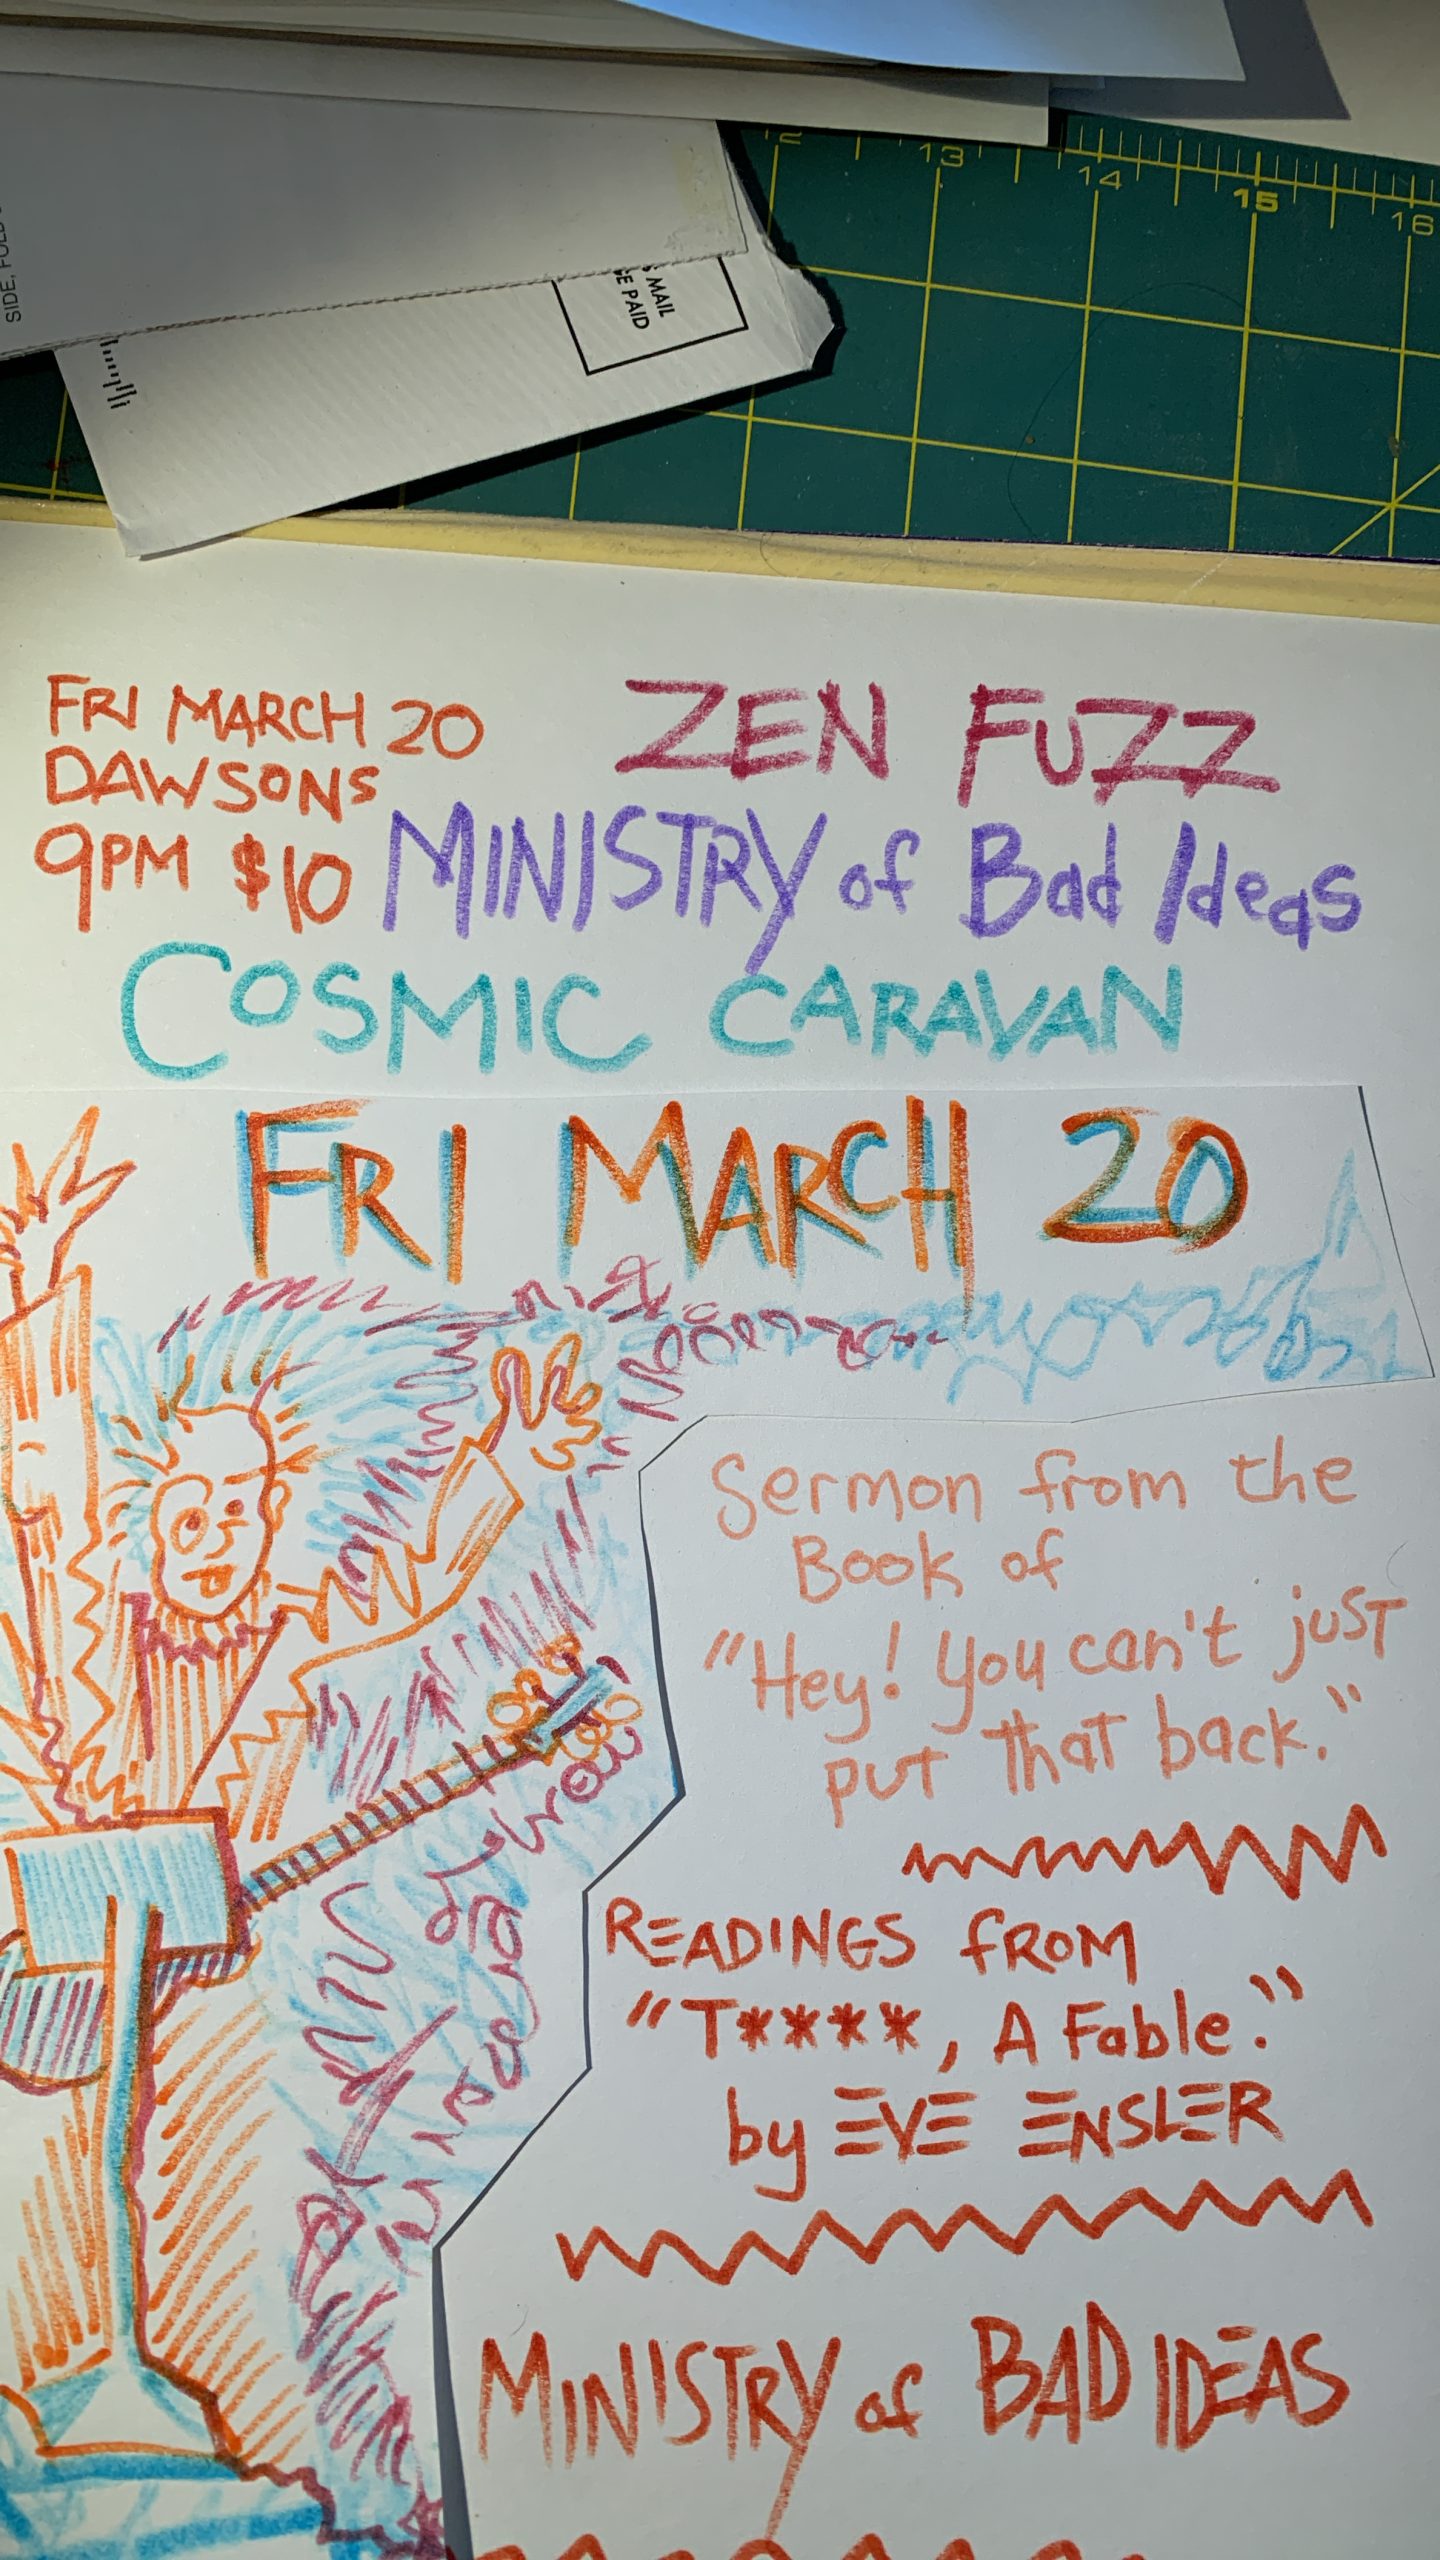 SIDE, FOLD
MAIL
GE PAID
12 13 14 15 16
FRI MARCH 20
DAWSONS
9PM $10
ZEN FUZZ
MINISTRY of Bad Ideas
COSMIC CARAVAN
FRI MARCH 20
Sermon from the
Book of
"Hey! You can't just
put that back."
READINGS fROM
"T****, A Fable."
by EVE ENSLER
MINISTRY of BAD IDEAS